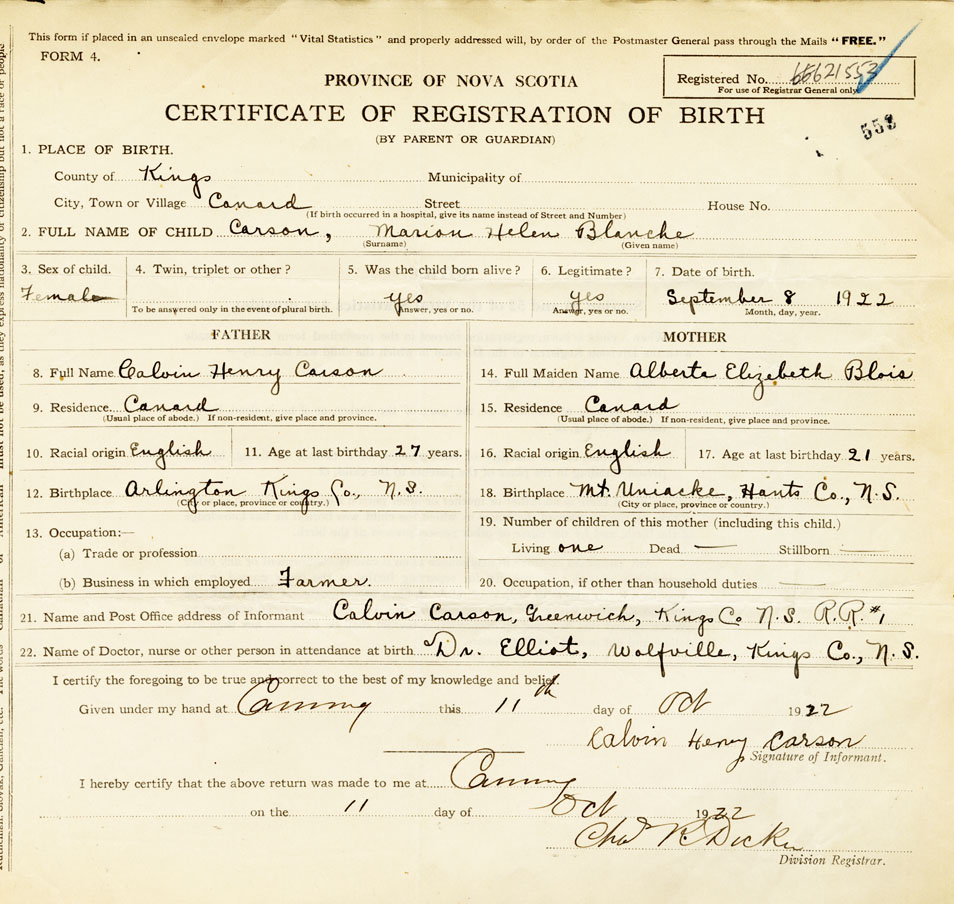 This form if placed in an unsealed envelope marked "Vital Statistics" and properly addressed will, by order of the Postmaster General pass through the Mails "FREE."
FORM 4.
PROVINCE OF NOVA SCOTIA
Registered No.
For use of Registrar General only
CERTIFICATE OF REGISTRATION OF BIRTH
553
(BY PARENT OR GUARDIAN)
1. PLACE OF BIRTH.
County of Kings Municipality of
City, Town or Village Canard Street House No.
(If birth occurred in a hospital, give its name instead of Street and Number)
2. FULL NAME OF CHILD Carson, Marion Helen Blanche
(Surname) (Given name)
3. Sex of child. 4. Twin, triplet or other? 5. Was the child born alive? 6. Legitimate? 7. Date of birth.
Female yes yes September 8 1922
To be answered only in the event of plural birth. Answer, yes or no. Answer, yes or no. Month, day, year.
FATHER MOTHER
8. Full Name Calvin Henry Carson 14. Full Maiden Name Alberta Elizebeth Blois
9. Residence Canard 15. Residence Canard
(Usual place of abode.) If non-resident, give place and province. (Usual place of abode.) If non-resident, give place and province.
10. Racial origin English 11. Age at last birthday 27 years. 16. Racial origin English 17. Age at last birthday 21 years.
12. Birthplace Arlington Kings Co., N.S. 18. Birthplace Mt. Uniacke, Hants Co., N.S.
(City or place, province or country.) (City or place, province or country.)
13. Occupation:— 19. Number of children of this mother (including this child.)
(a) Trade or profession Living one Dead — Stillborn —
(b) Business in which employed Farmer. 20. Occupation, if other than household duties —
21. Name and Post Office address of Informant Calvin Carson, Greenwich, Kings Co N.S. R.R. #1
22. Name of Doctor, nurse or other person in attendance at birth Dr. Elliot, Wolfville, Kings Co., N.S.
I certify the foregoing to be true and correct to the best of my knowledge and belief.
Given under my hand at Canning this 11th day of Oct 1922
Calvin Henry Carson
Signature of Informant.
I hereby certify that the above return was made to me at Canning
on the 11 day of Oct 1922
Division Registrar.